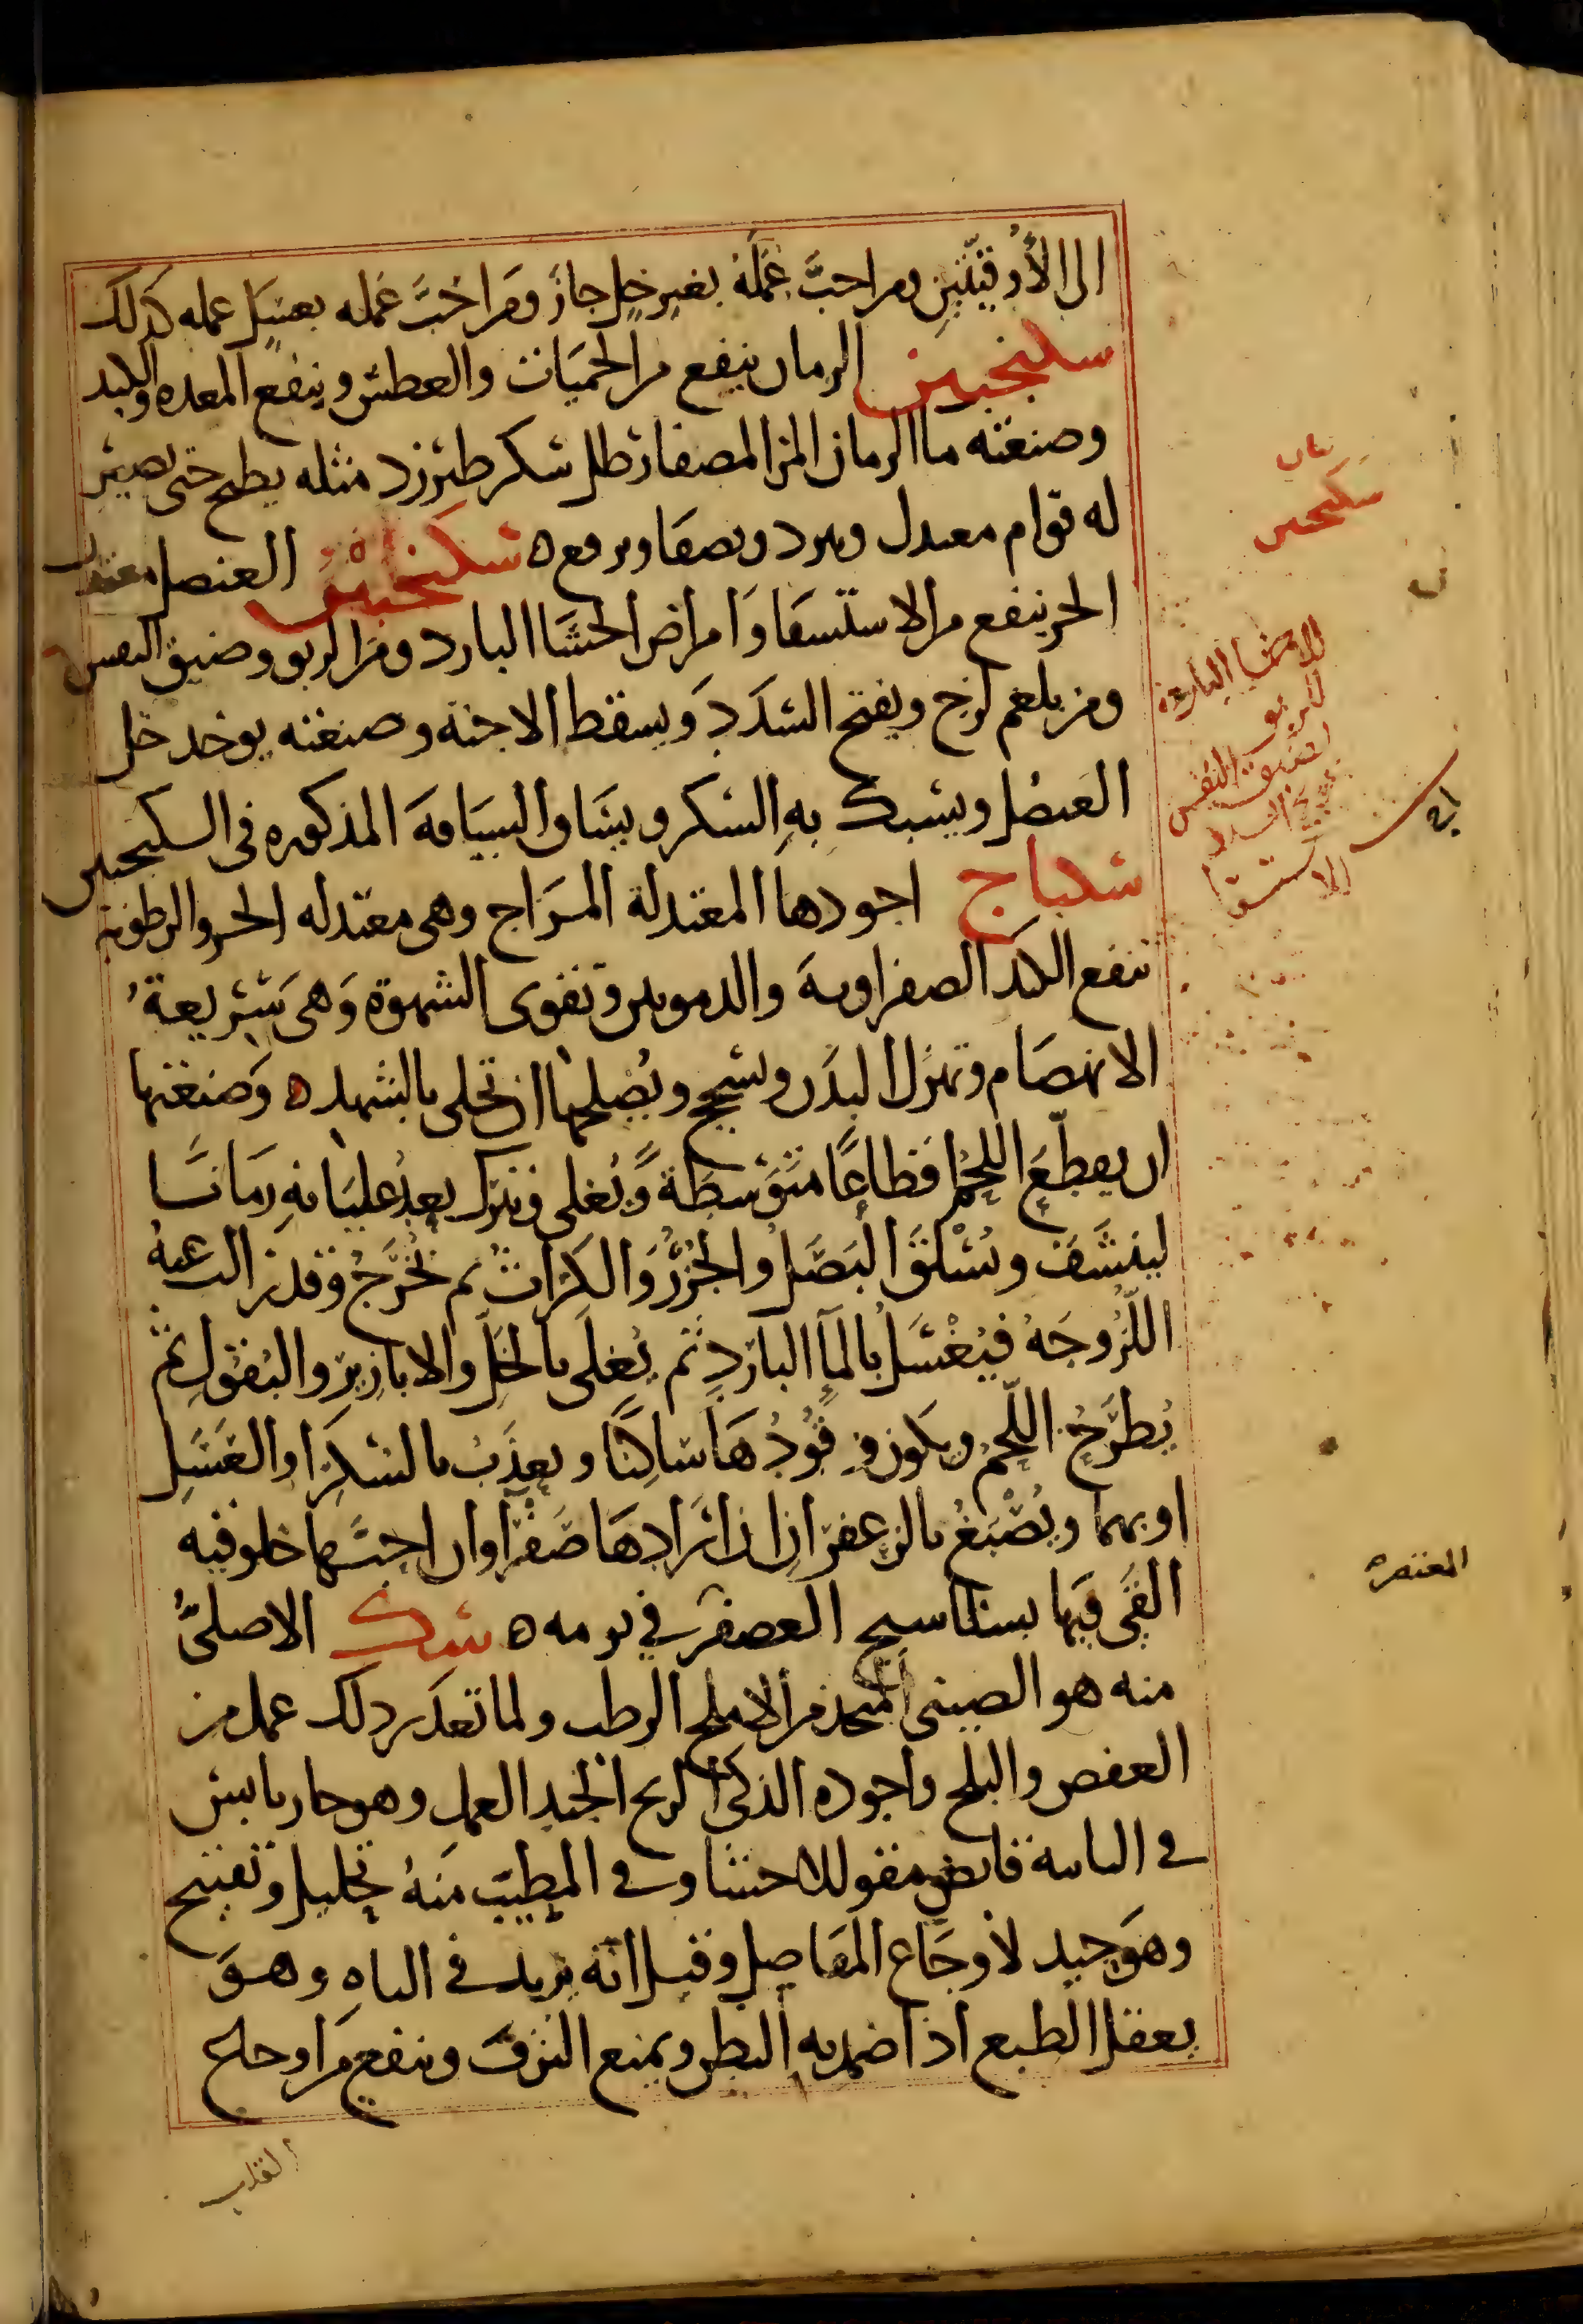 الى الأوقيتين ومن احبّ عمله بغير خل جاز ومن احبّ عمله بعسل عمله كذلك
سكنجبين الرمان ينفع من الحميات والعطش وينفع المعده والكبد
وصنعته ما الرمان المز المصفا رطل سكر طبرزد مثله يطبخ حتى يصير
له قوام معتدل ويبرد ويصفا ويرفع ه سكنجبين العنصل معتدل
الحر ينفع من الاستسقا وامراض الحشا البارد ومن الربو وضيق النفس
ومن بلغم لزج ويفتح السدد ويسقط الاجنة وصنعته يوخد خل
العنصل ويسبك به السكر ويساق السياقة المذكوره فى السكنجبين
سكباج اجودها المعتدلة المزاج وهى معتدله الحر والرطوبة
تنفع الكبد الصفراوية والدمويين وتقوى الشهوة وهى سريعة
الانهضام وتهزل البدن وتسحج ويصلحها ان تحلى بالشهد ه وصنعتها
ان يقطّع اللحم قطاعًا متوسطة ويغلى ويترك بعد غليانه زمانا
لينشف ويسلق البصل والجزر والكراث ثم تخرج وقدر
اللزوجه فيغسل بالمآ البارد ثم يغلى بالخل والابازير والبقول ثم
يطرح اللحم ويكون وقودها ساكنا ويعذب بالسكر او العسل
او بهما ويصبغ بالزعفران ان ارادها صفرآ وان احبها خلوقيه
القى فيها العصفر في يومه ه سك الاصلىّ
منه هو الصينى المتخذ من الاملج الرطب ولما تعذر ذلك عمل من
العفص والبلح واجوده الذكى الريح الجيد العمل وهو حار يابس
في الثانية قابض مقو للاحشا وفى المطيب منه تحليل وتفتيح
وهو جيد لأوجاع المفاصل وقيل انه يزيد فى الباه وهو
يعقل الطبع اذا ضمد به البطن ويمنع النزف وينفع من اوجاع
القلب
سكنجبين
الاحشا الباردة
الربو
وضيق النفس
السدد
الاستسقا
المعتصره